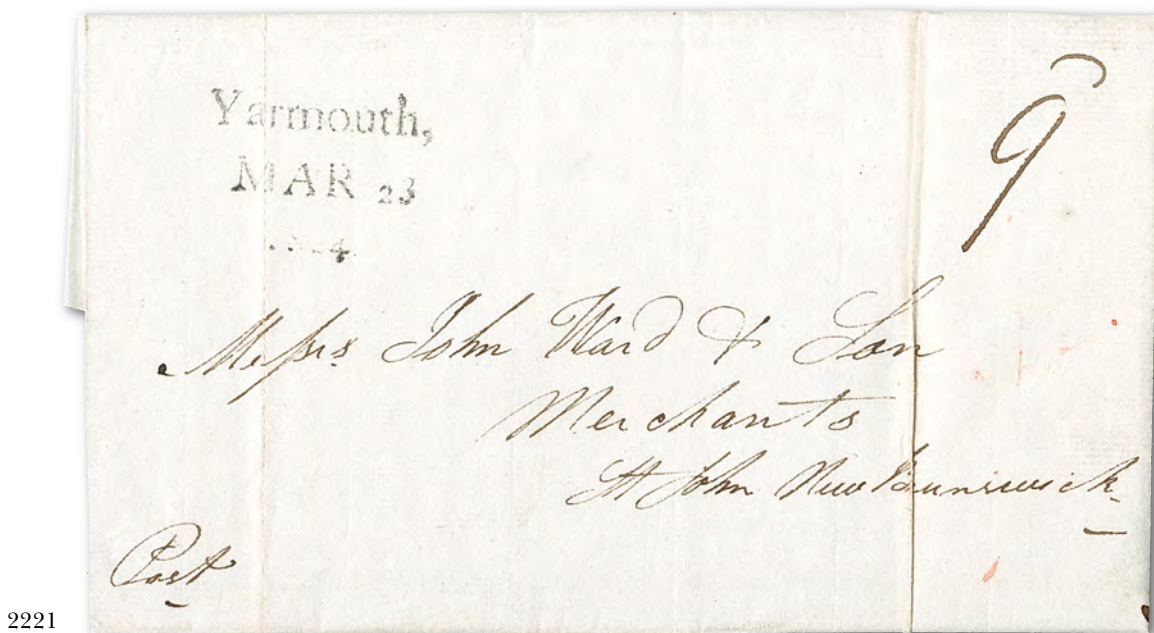 Yarmouth,
MAR 23
9
Messrs. John Ward & Son
Merchants
St John New Brunswick
Post
2221